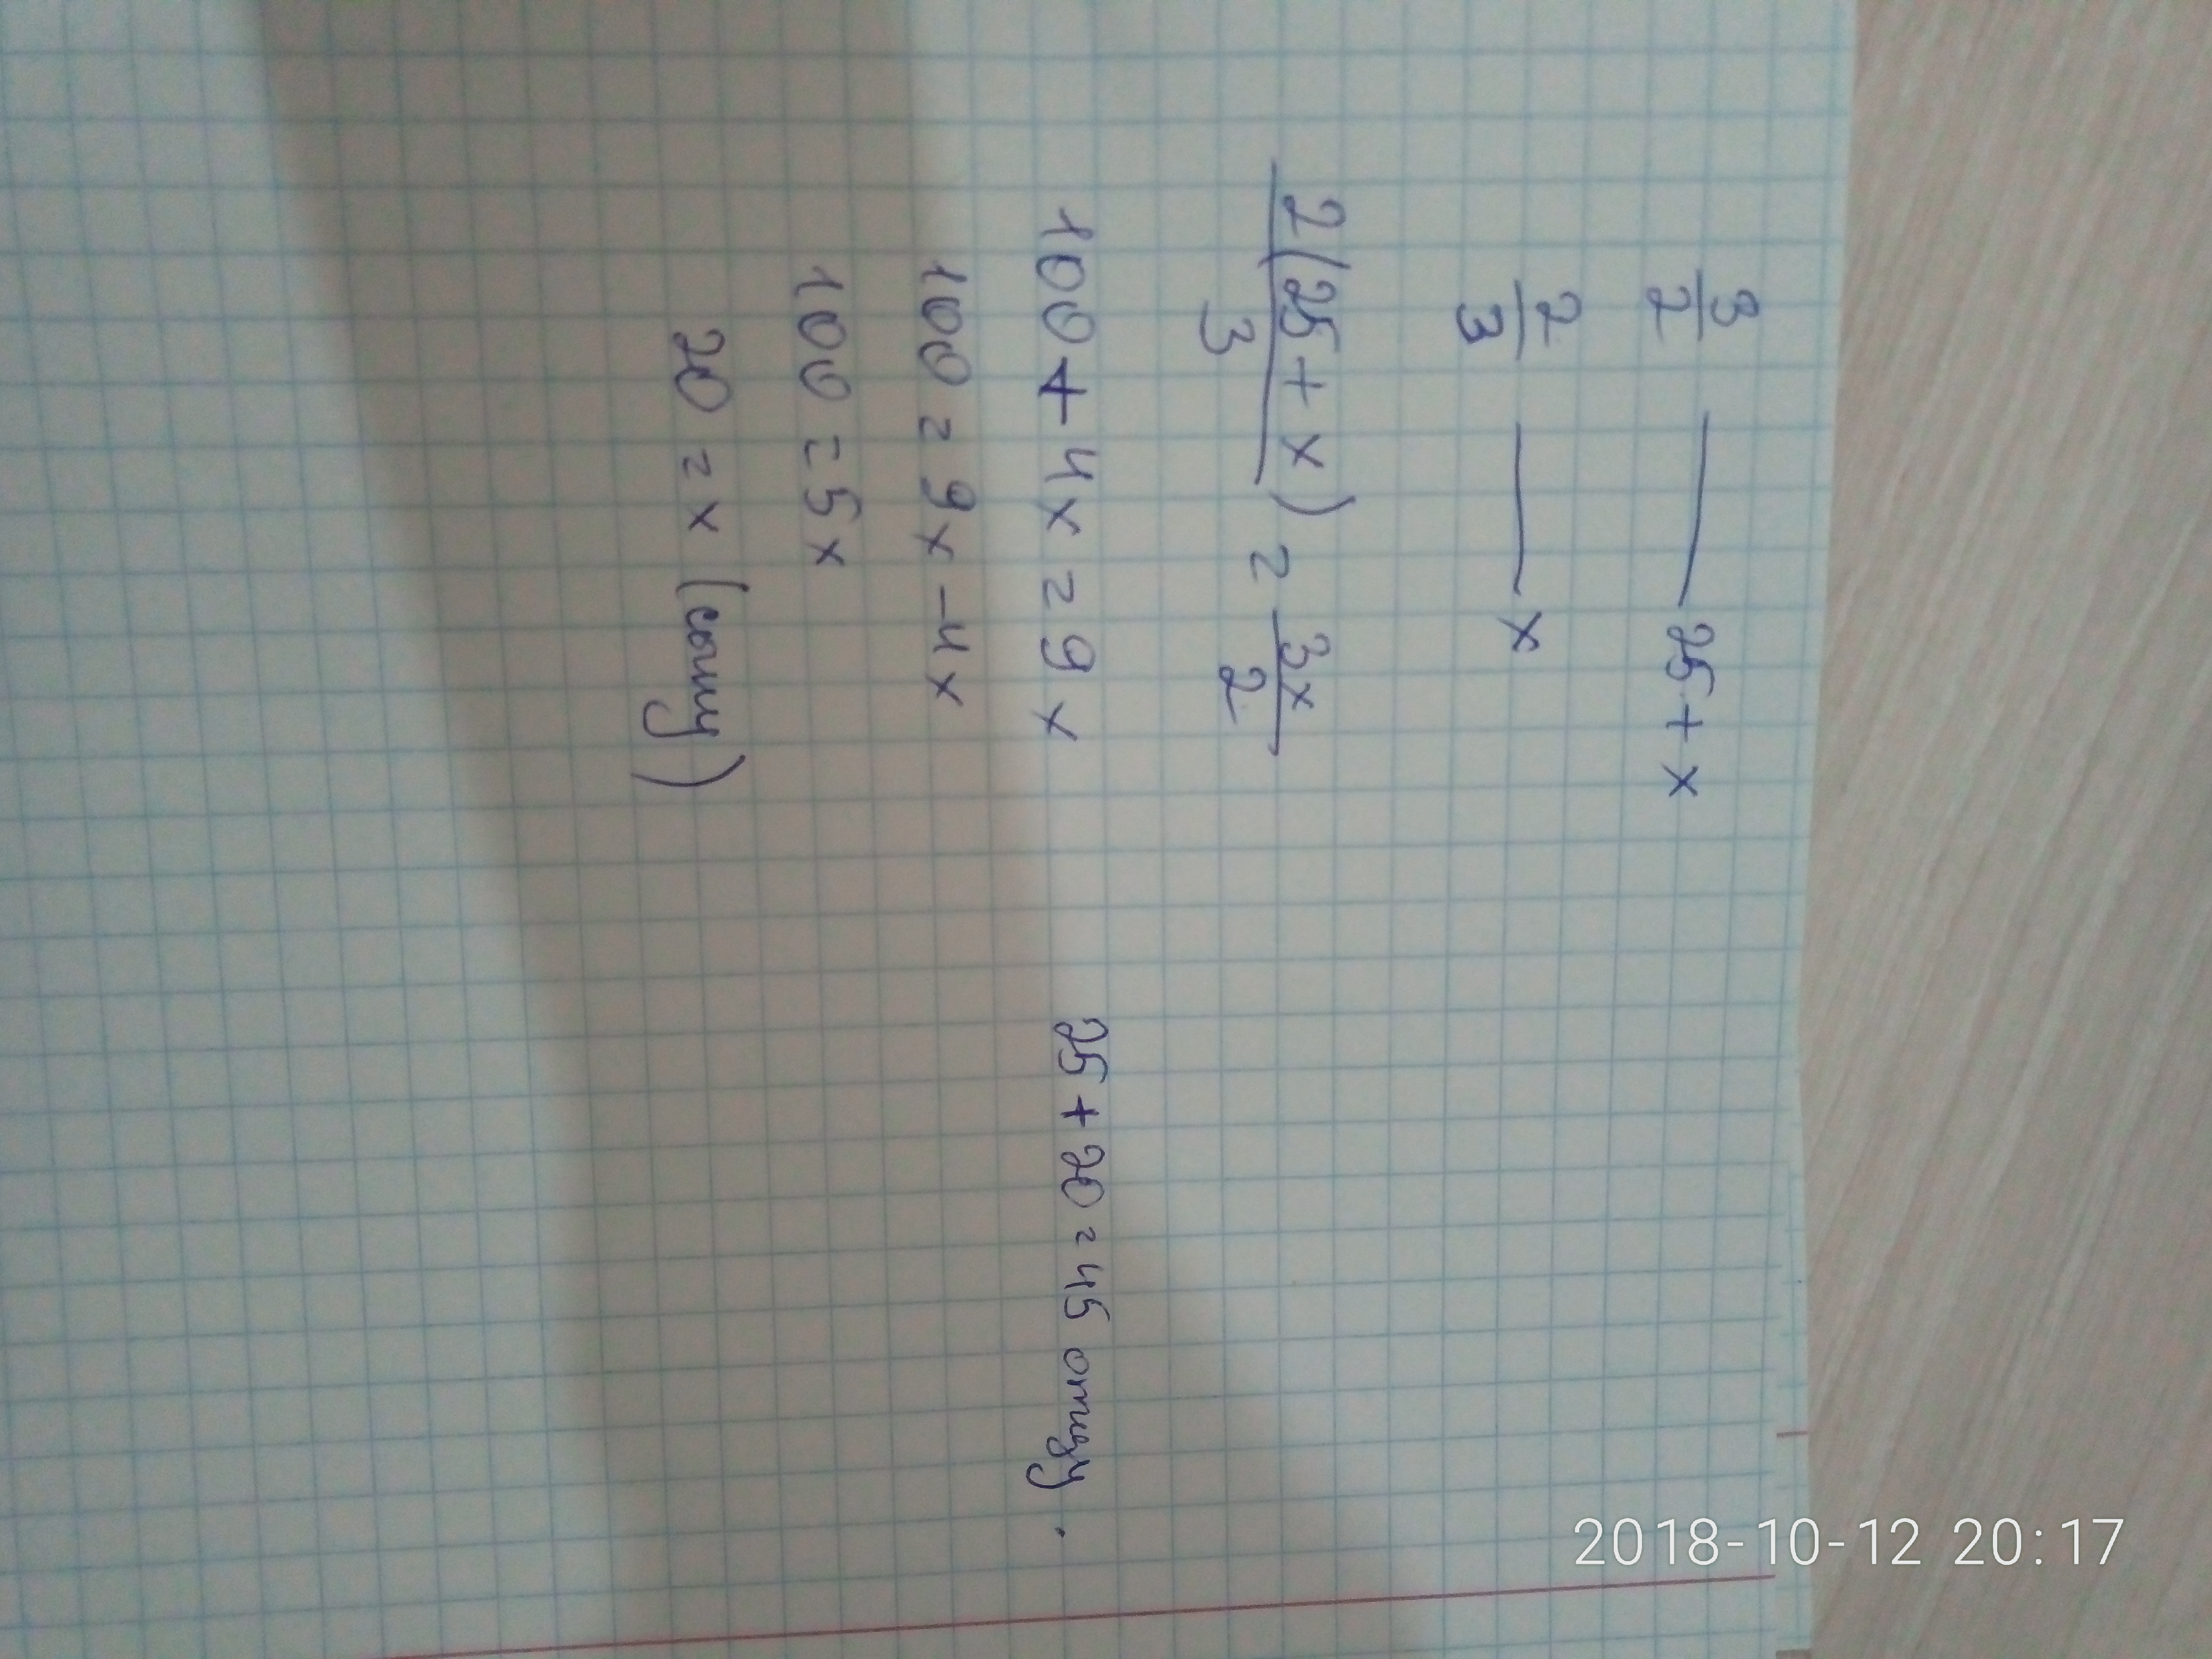 3/2 — 25 + x
2/3 — x
2(25 + x)/3 = 3x/2
100 + 4x = 9x
100 = 9x - 4x
100 = 5x
20 = x (сому)
25 + 20 = 45 отцу.
2018-10-12 20:17